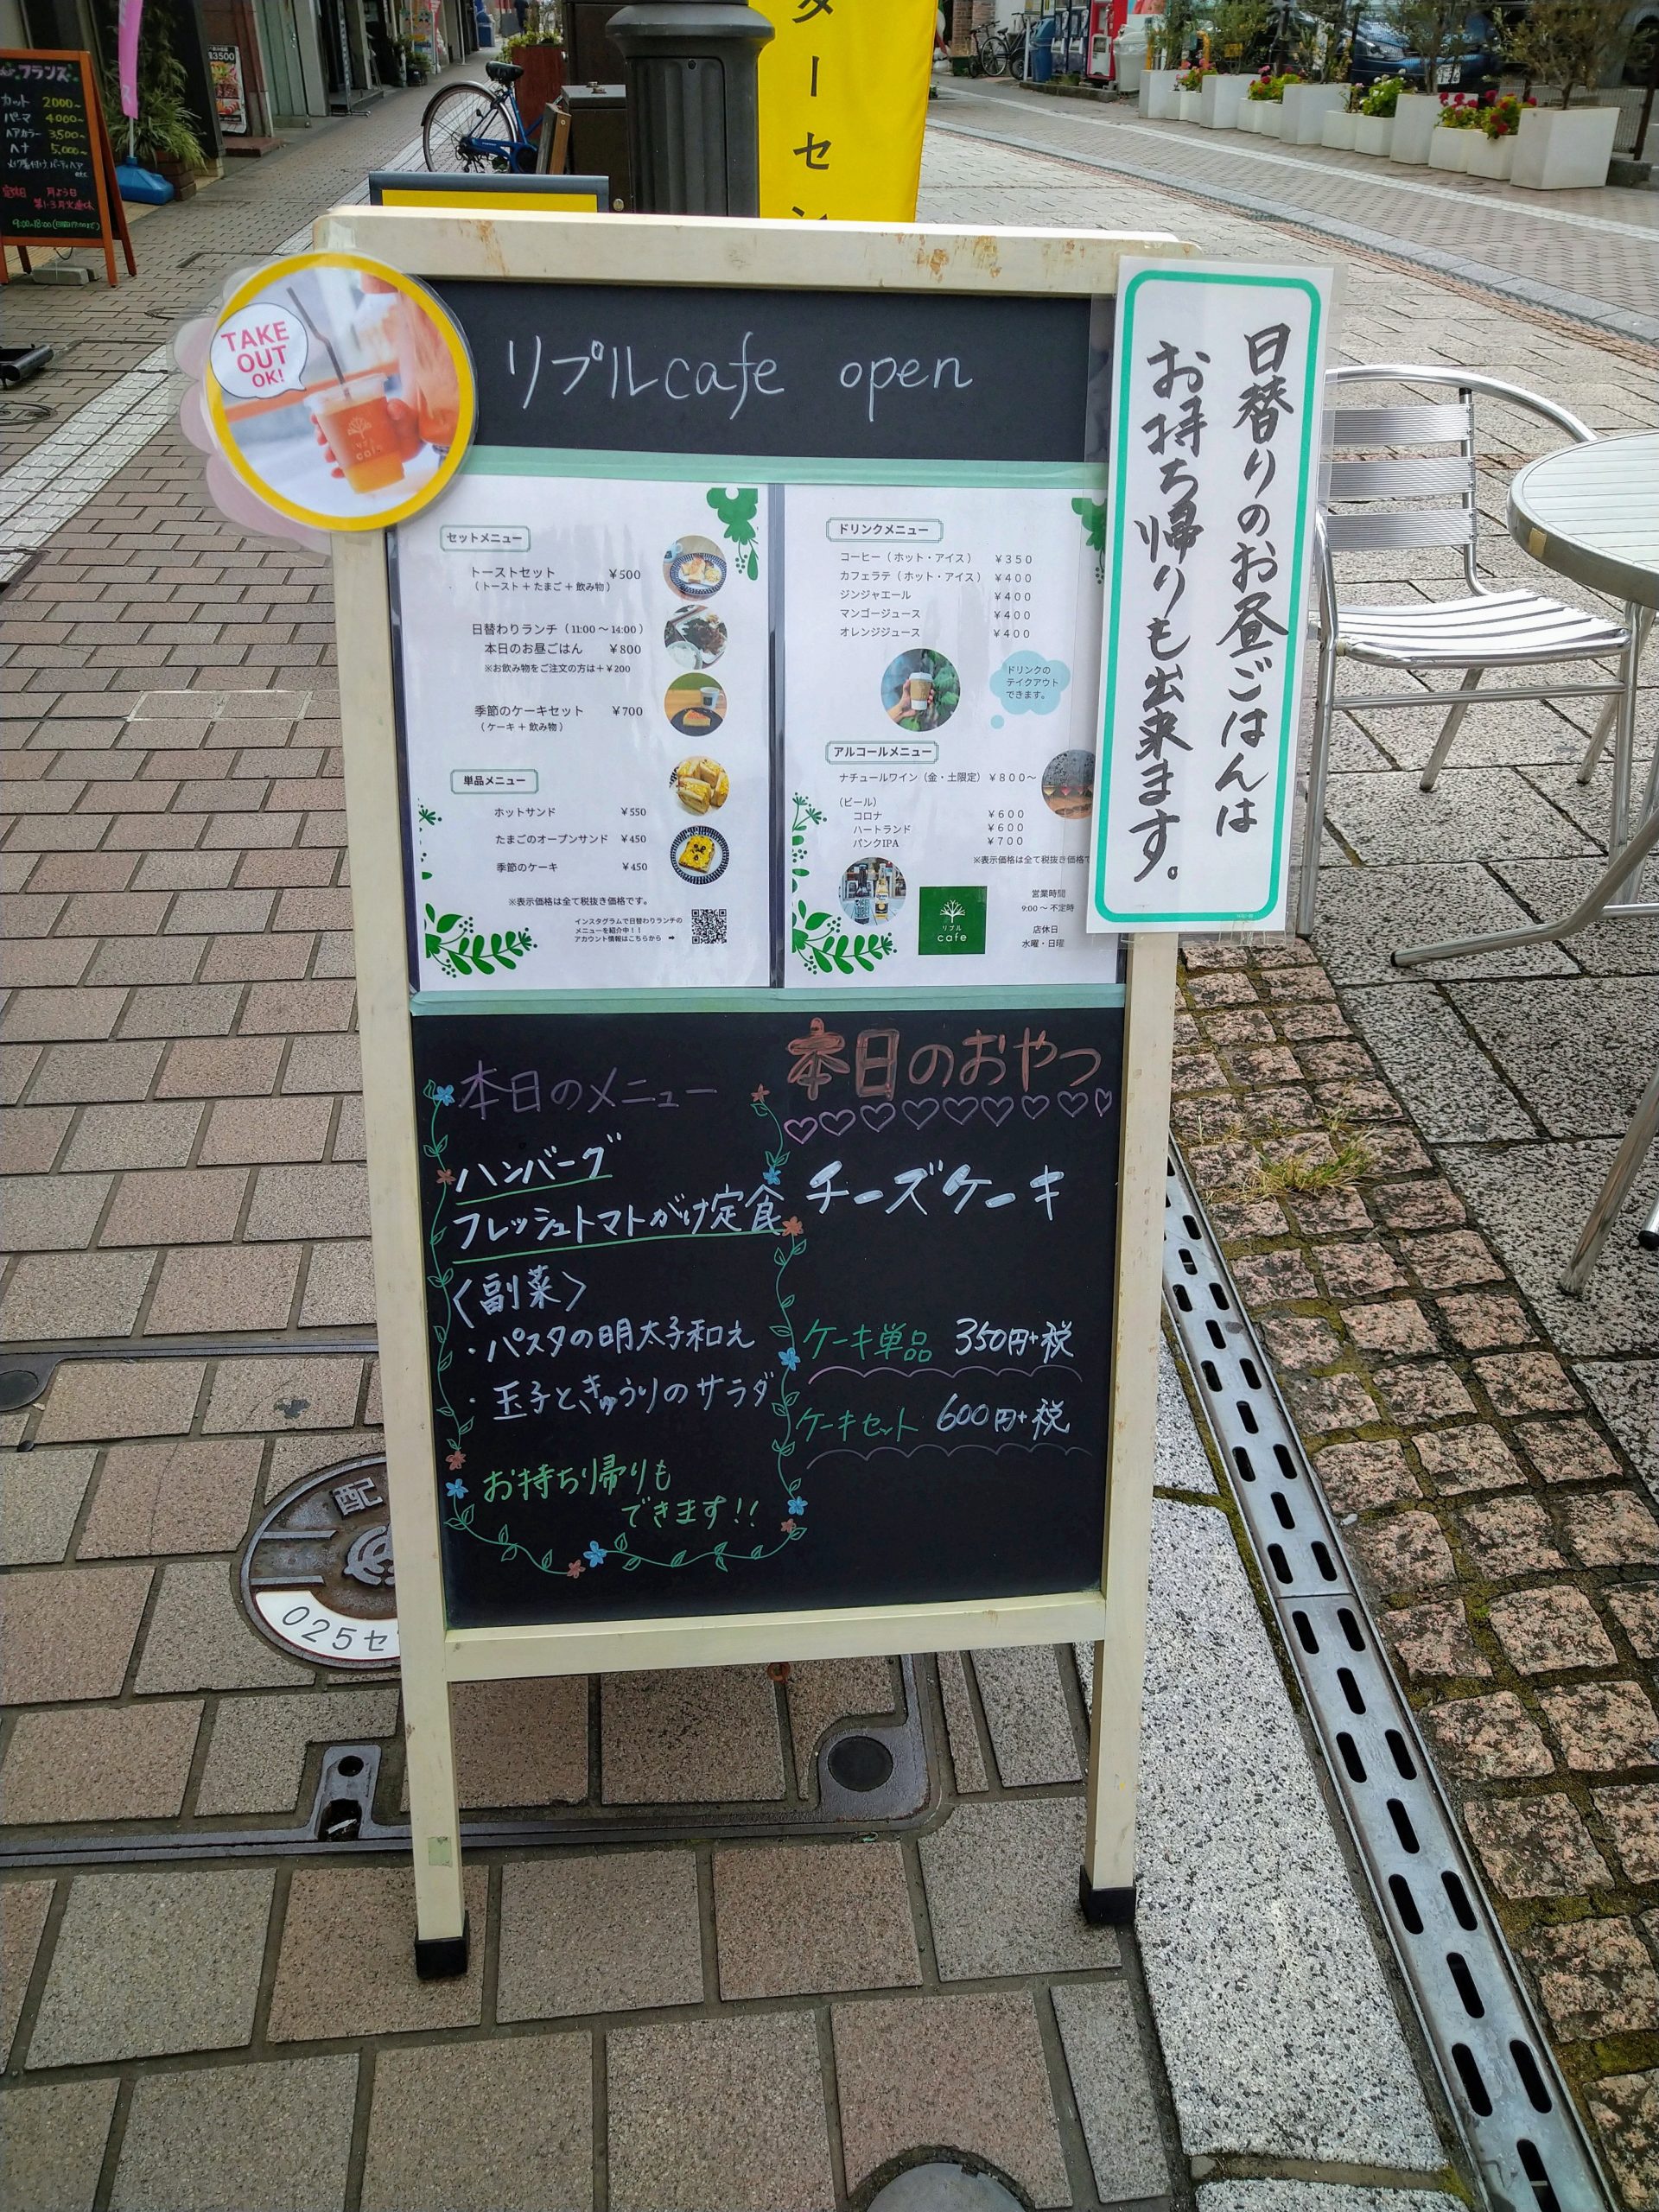 フランズ
カット 2000~
パーマ 4000~
ヘアカラー 3,500~
ヘナ 5,000~
etc.
定休日 月よう日
第1・3月火連休
3500
ターセン
TAKE
OUT
OK!
リプルcafe open
セットメニュー
トーストセット ¥500
(トースト + たまご + 飲み物)
日替わりランチ (11:00 〜 14:00)
本日のお昼ごはん ¥800
※お飲み物をご注文の方は+¥200
季節のケーキセット ¥700
(ケーキ + 飲み物)
単品メニュー
ホットサンド ¥550
たまごのオープンサンド ¥450
季節のケーキ ¥450
※表示価格は全て税抜き価格です。
インスタグラムで日替わりランチの
メニューを紹介中!!
アカウント情報はこちらから ➡
ドリンクメニュー
コーヒー(ホット・アイス) ¥350
カフェラテ(ホット・アイス) ¥400
ジンジャエール ¥400
マンゴージュース ¥400
オレンジジュース ¥400
ドリンクの
テイクアウト
できます。
アルコールメニュー
ナチュールワイン(金・土限定) ¥800〜
(ビール)
コロナ ¥600
ハートランド ¥600
パンクIPA ¥700
※表示価格は全て税抜き価格で
リプル
cafe
営業時間
9:00 〜 不定時
店休日
水曜・日曜
日替りのお昼ごはんは
お持ち帰りも出来ます。
本日のメニュー
ハンバーグ
フレッシュトマトがけ定食
〈副菜〉
・パスタの明太子和え
・玉子ときゅうりのサラダ
お持ち帰りも
できます!!
本日のおやつ
チーズケーキ
ケーキ単品 350円+税
ケーキセット 600円+税
配
025セ